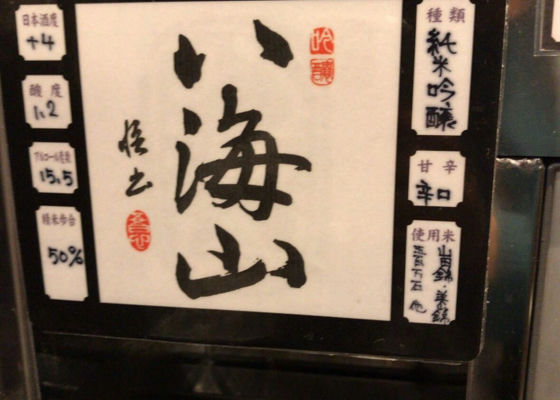 日本酒度
+4
酸度
1.2
アルコール度数
15.5
精米歩合
50%
八海山
吟醸
種類
純米吟醸
甘辛
辛口
使用米
山田錦・美山錦
五百万石 他